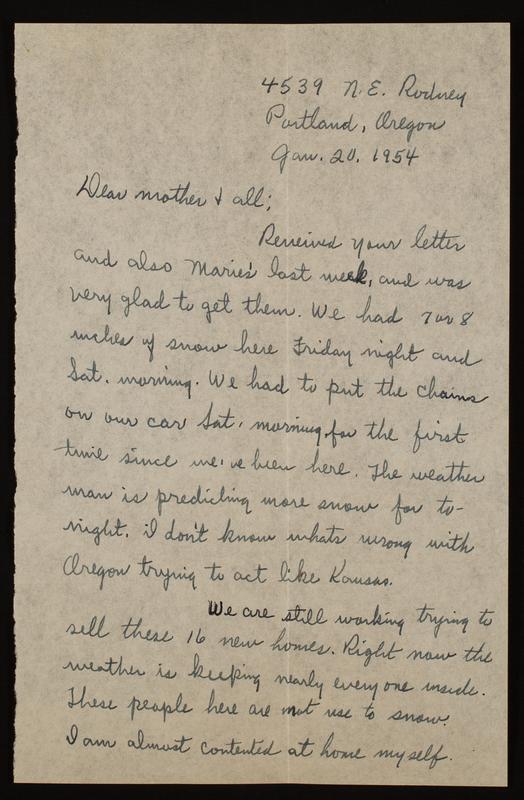 4539 N.E. Rodney
Portland, Oregon
Jan. 20, 1954
Dear mother & all;
Received your letter
and also Marie's last week, and was
very glad to get them. We had 7 or 8
inches of snow here Friday night and
Sat. morning. We had to put the chains
on our car Sat. morning, for the first
time since we've been here. The weather
man is predicting more snow for to-
night. I don't know whats wrong with
Oregon trying to act like Kansas.
We are still working trying to
sell these 16 new homes. Right now the
weather is keeping nearly every one inside.
These people here are not use to snow.
I am almost contented at home myself.